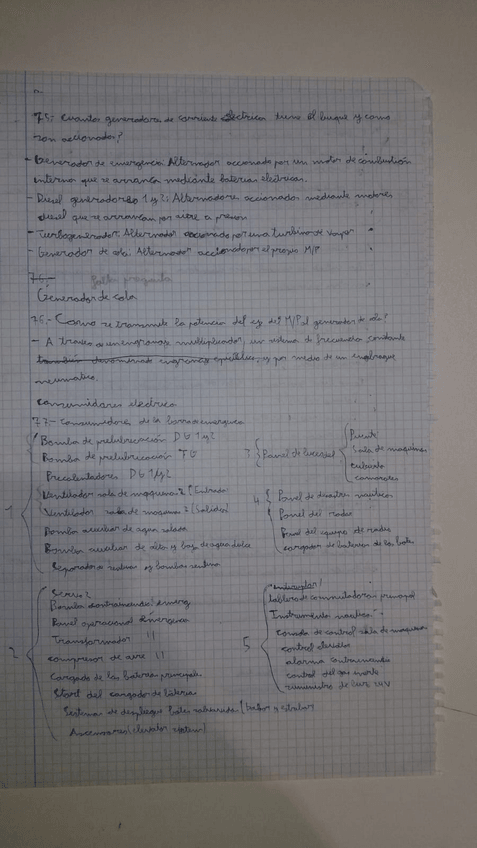 75: Cuantos generadores de corriente electrica tiene el buque y como
son accionados?
- Generador de emergencia: Alternador accionado por un motor de combustión
interna que se arranca mediante baterias electricas.
- Diesel generadores 1 y 2: Alternadores accionados mediante motores
diesel que se arrancan por aire a presion
- Turbogenerador: Alternador accionado por una turbina de vapor
- Generador de cola: Alternador accionado por el propio M/P
76.- Falta pregunta
Generador de cola
76.- Como se transmite la potencia del eje del M/P al generador de cola?
- A traves de un engranaje multiplicador, un sistema de frecuencia constante
y por medio de un embrague
neumatico.
Consumidores electrica
77.- Consumidores de la barra emergencia
1
Bomba de prelubricación DG 1y2
Bomba de prelubricación TG
Precalentadores DG 1y2
Ventilador sala de maquinas 2 (Entrada)
Ventilador sala de maquinas 3 (Salida)
Bomba auxiliar de agua salada
Bombas auxiliar de alta y baja de agua dulce
Separadora sentinas y bombas sentina
3 Panel de
Puente
Sala de maquinas
cubierta
camarotes
4 Panel de nauticos
Panel del radar
Panel del equipo de radio
cargador de baterias de los botes
2
Servo 2
Bomba contraincendios emerg
Panel operacional Emergencia
Transformador 11
compresor de aire 11
Cargador de las baterias principales
Start del cargador de bateria
Sistema de despliegue botes salvavidas (babor y estribor)
Ascensores (elevator system)
5
tablero de conmutadores principal
Instrumento nautico
Consola de control sala de maquinas
control
alarma contraincendio
control del gas inerte
suministro de luz 24V